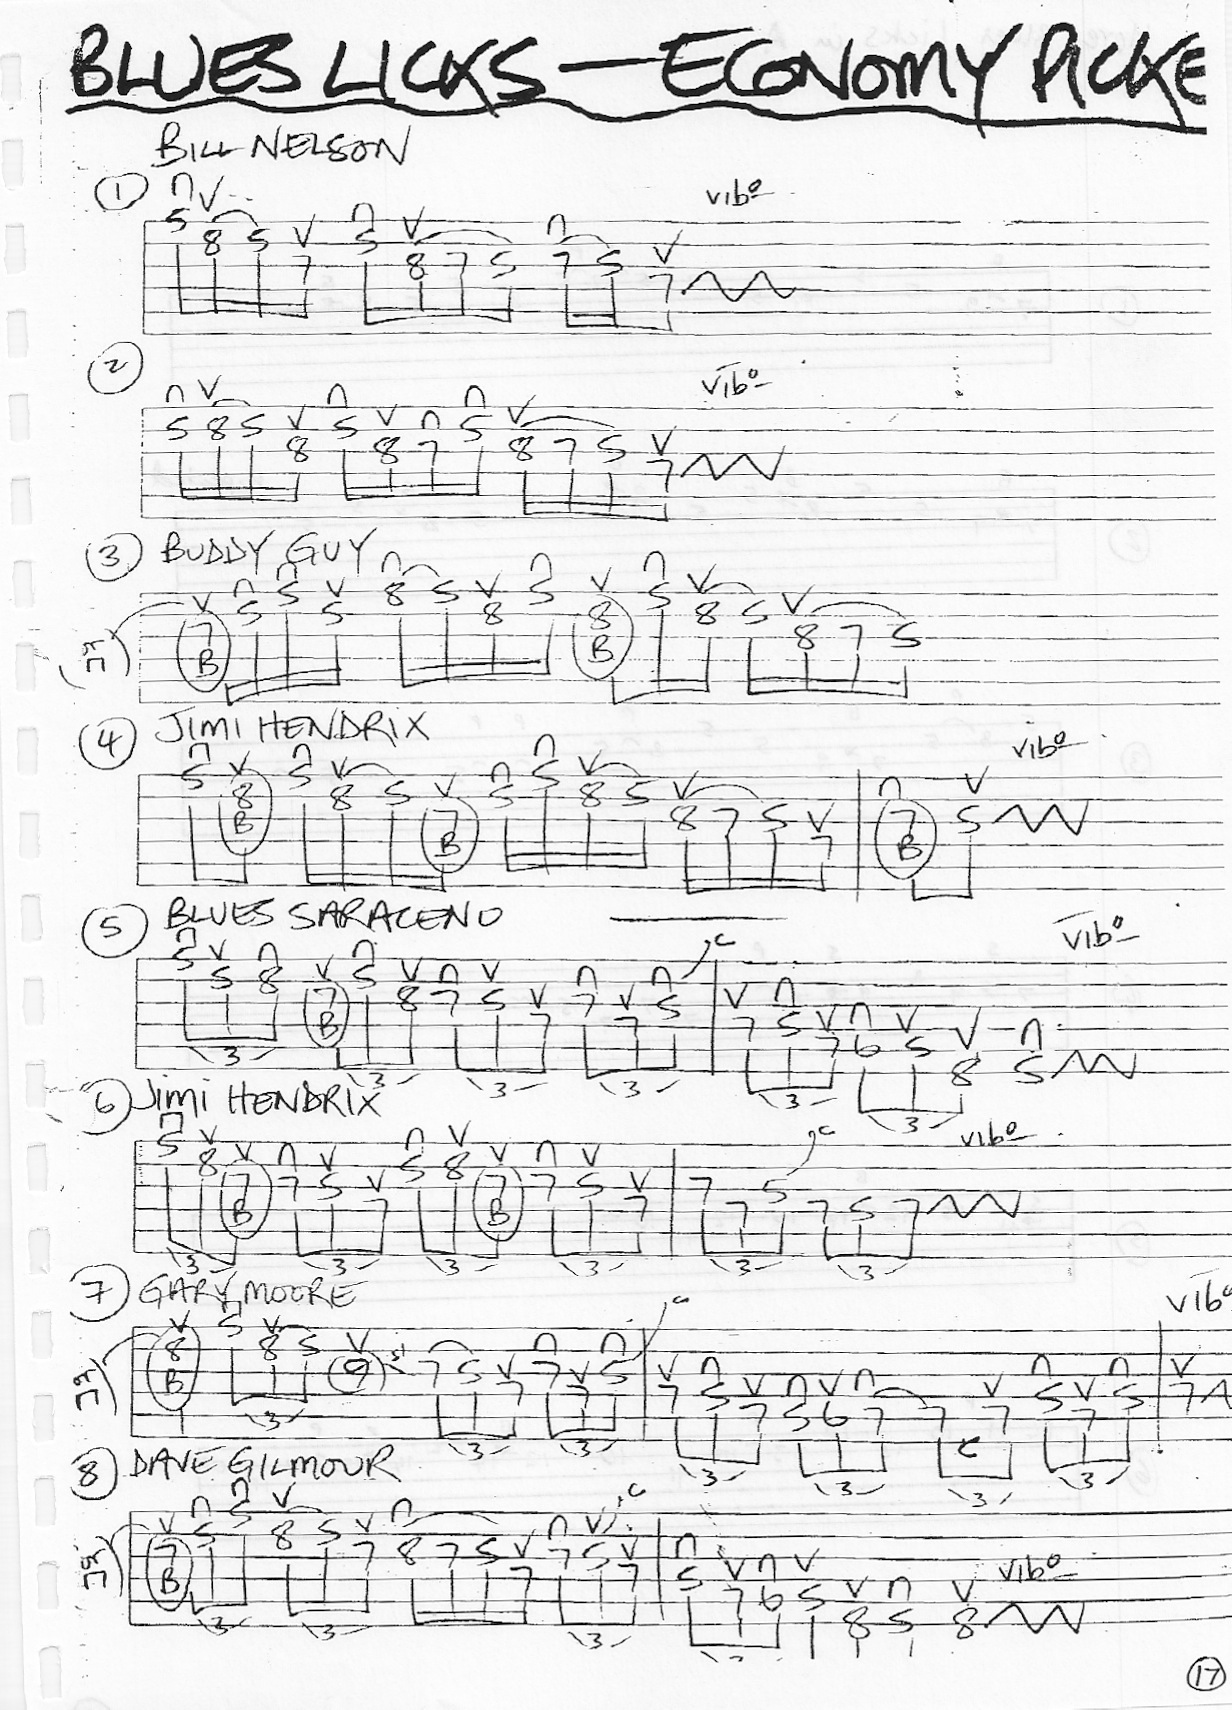 BLUES LICKS — ECONOMY PICKE
BILL NELSON
1 vibº
5 8 5 7 5 8 7 5 7 5 7
2 vibº
5 8 5 8 5 8 7 5 8 7 5 7
3 BUDDY GUY
7 B 5 5 5 8 5 8 5 8 B 5 8 5 8 7 5
4 JIMI HENDRIX vibº
5 8 B 5 8 5 7 B 5 5 8 5 8 7 5 7 7 B 5
5 BLUES SARACENO vibº
5 5 8 7 B 5 8 7 5 7 7 7 5 c 7 5 7 6 5 8 5
3 3 3 3 3 3
6 JIMI HENDRIX vibº
5 8 7 B 7 5 7 5 8 7 B 7 5 7 7 7 5 c 7 5 7
3 3 3 3 3 3
7 GARY MOORE vibº
8 B 5 8 5 9 7 5 7 7 7 5 c 7 5 7 5 6 7 7 7 5 7 5 7
3 3 3 3 3 c 3 3
8 DAVE GILMOUR vibº
7 B 5 5 8 5 7 8 7 5 7 7 5 7 c 5 7 6 5 8 5 8
3 3 3
17